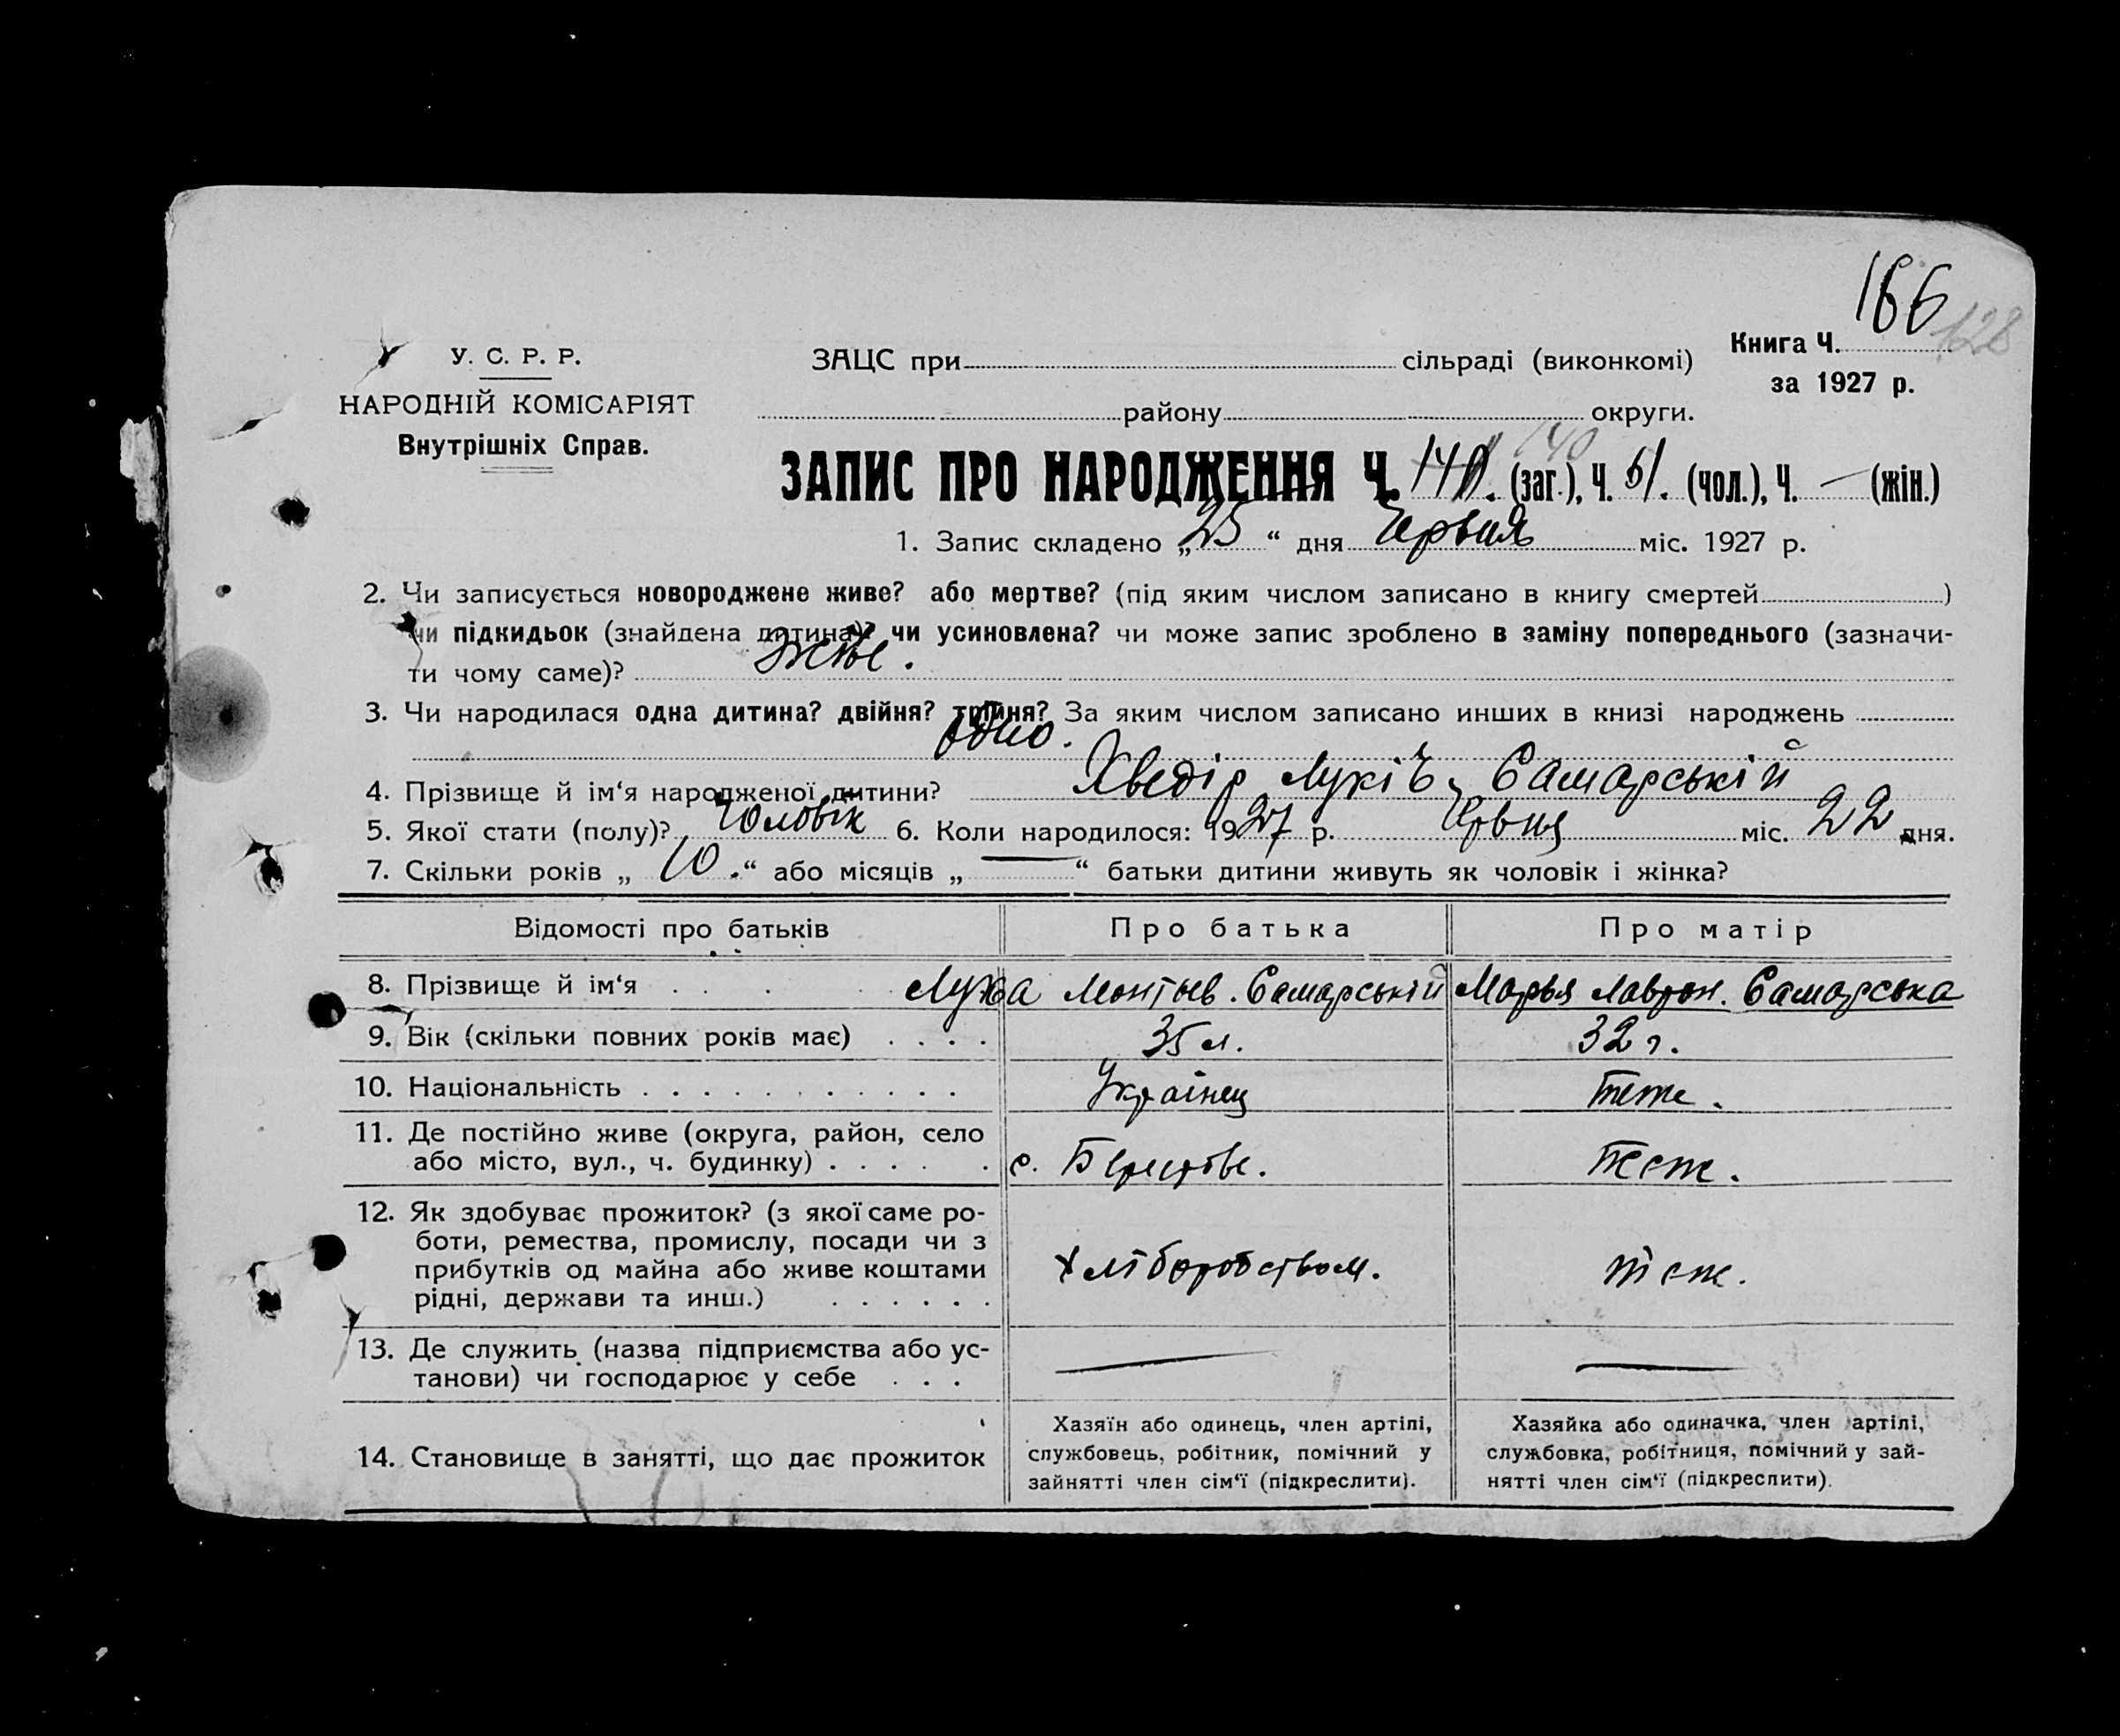 166
128
У. С. Р. Р.
НАРОДНІЙ КОМІСАРІЯТ
Внутрішніх Справ.
ЗАЦС при сільраді (виконкомі)
Книга Ч.
за 1927 р.
району округи.
140
ЗАПИС ПРО НАРОДЖЕННЯ Ч. (заг.), Ч. 61. (чол.), Ч. — (жін.)
1. Запис складено „25“ дня Червня міс. 1927 р.
2. Чи записується новороджене живе? або мертве? (під яким числом записано в книгу смертей)
чи підкидьок (знайдена дитина)? чи усиновлена? чи може запис зроблено в заміну попереднього (зазначи-
ти чому саме)? Живе.
3. Чи народилася одна дитина? двійня? трійня? За яким числом записано инших в книзі народжень
одно.
4. Прізвище й ім‘я народженої дитини? Хведір Лукіч Самарській
5. Якої стати (полу)? Чоловік 6. Коли народилося: 1927 р. Червня міс. 22 дня.
7. Скільки років „10.“ або місяців „—“ батьки дитини живуть як чоловік і жінка?
Відомості про батьків Про батька Про матір
8. Прізвище й ім‘я . . . . Лука Самарській Марья Лаврон. Самарська
9. Вік (скільки повних років має) . . . . 35 л. 32 г.
10. Національність . . . . . . . . . . . Українец теж.
11. Де постійно живе (округа, район, село
або місто, вул., ч. будинку) . . . . . с. теж.
12. Як здобуває прожиток? (з якої саме ро-
боти, ремества, промислу, посади чи з
прибутків од майна або живе коштами
рідні, держави та инш.) . . . . . . Хліборобством. теж.
13. Де служить (назва підприємства або ус-
танови) чи господарює у себе . . . — —
14. Становище в занятті, що дає прожиток
Хазяїн або одинець, член артілі,
службовець, робітник, помічний у
зайнятті член сім‘ї (підкреслити).
Хазяйка або одиначка, член артілі,
службовка, робітниця, помічний у зай-
нятті член сім‘ї (підкреслити).